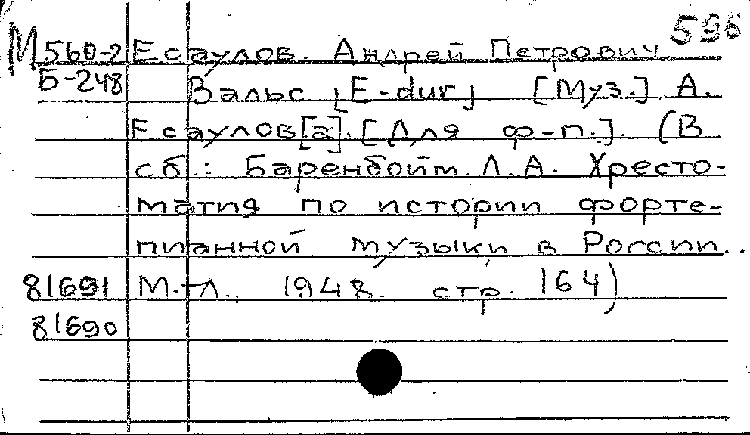 596
М560-2 Есаулов. Андрей Петрович
Б-248 Вальс [E-dur] [Муз.] А.
Есаулов[а]. [Для ф-п.]. (В
сб.: Баренбойм Л.А. Хресто-
матия по истории форте-
пианной музыки в России..
81691 М.-Л., 1948. стр. 164)
81690